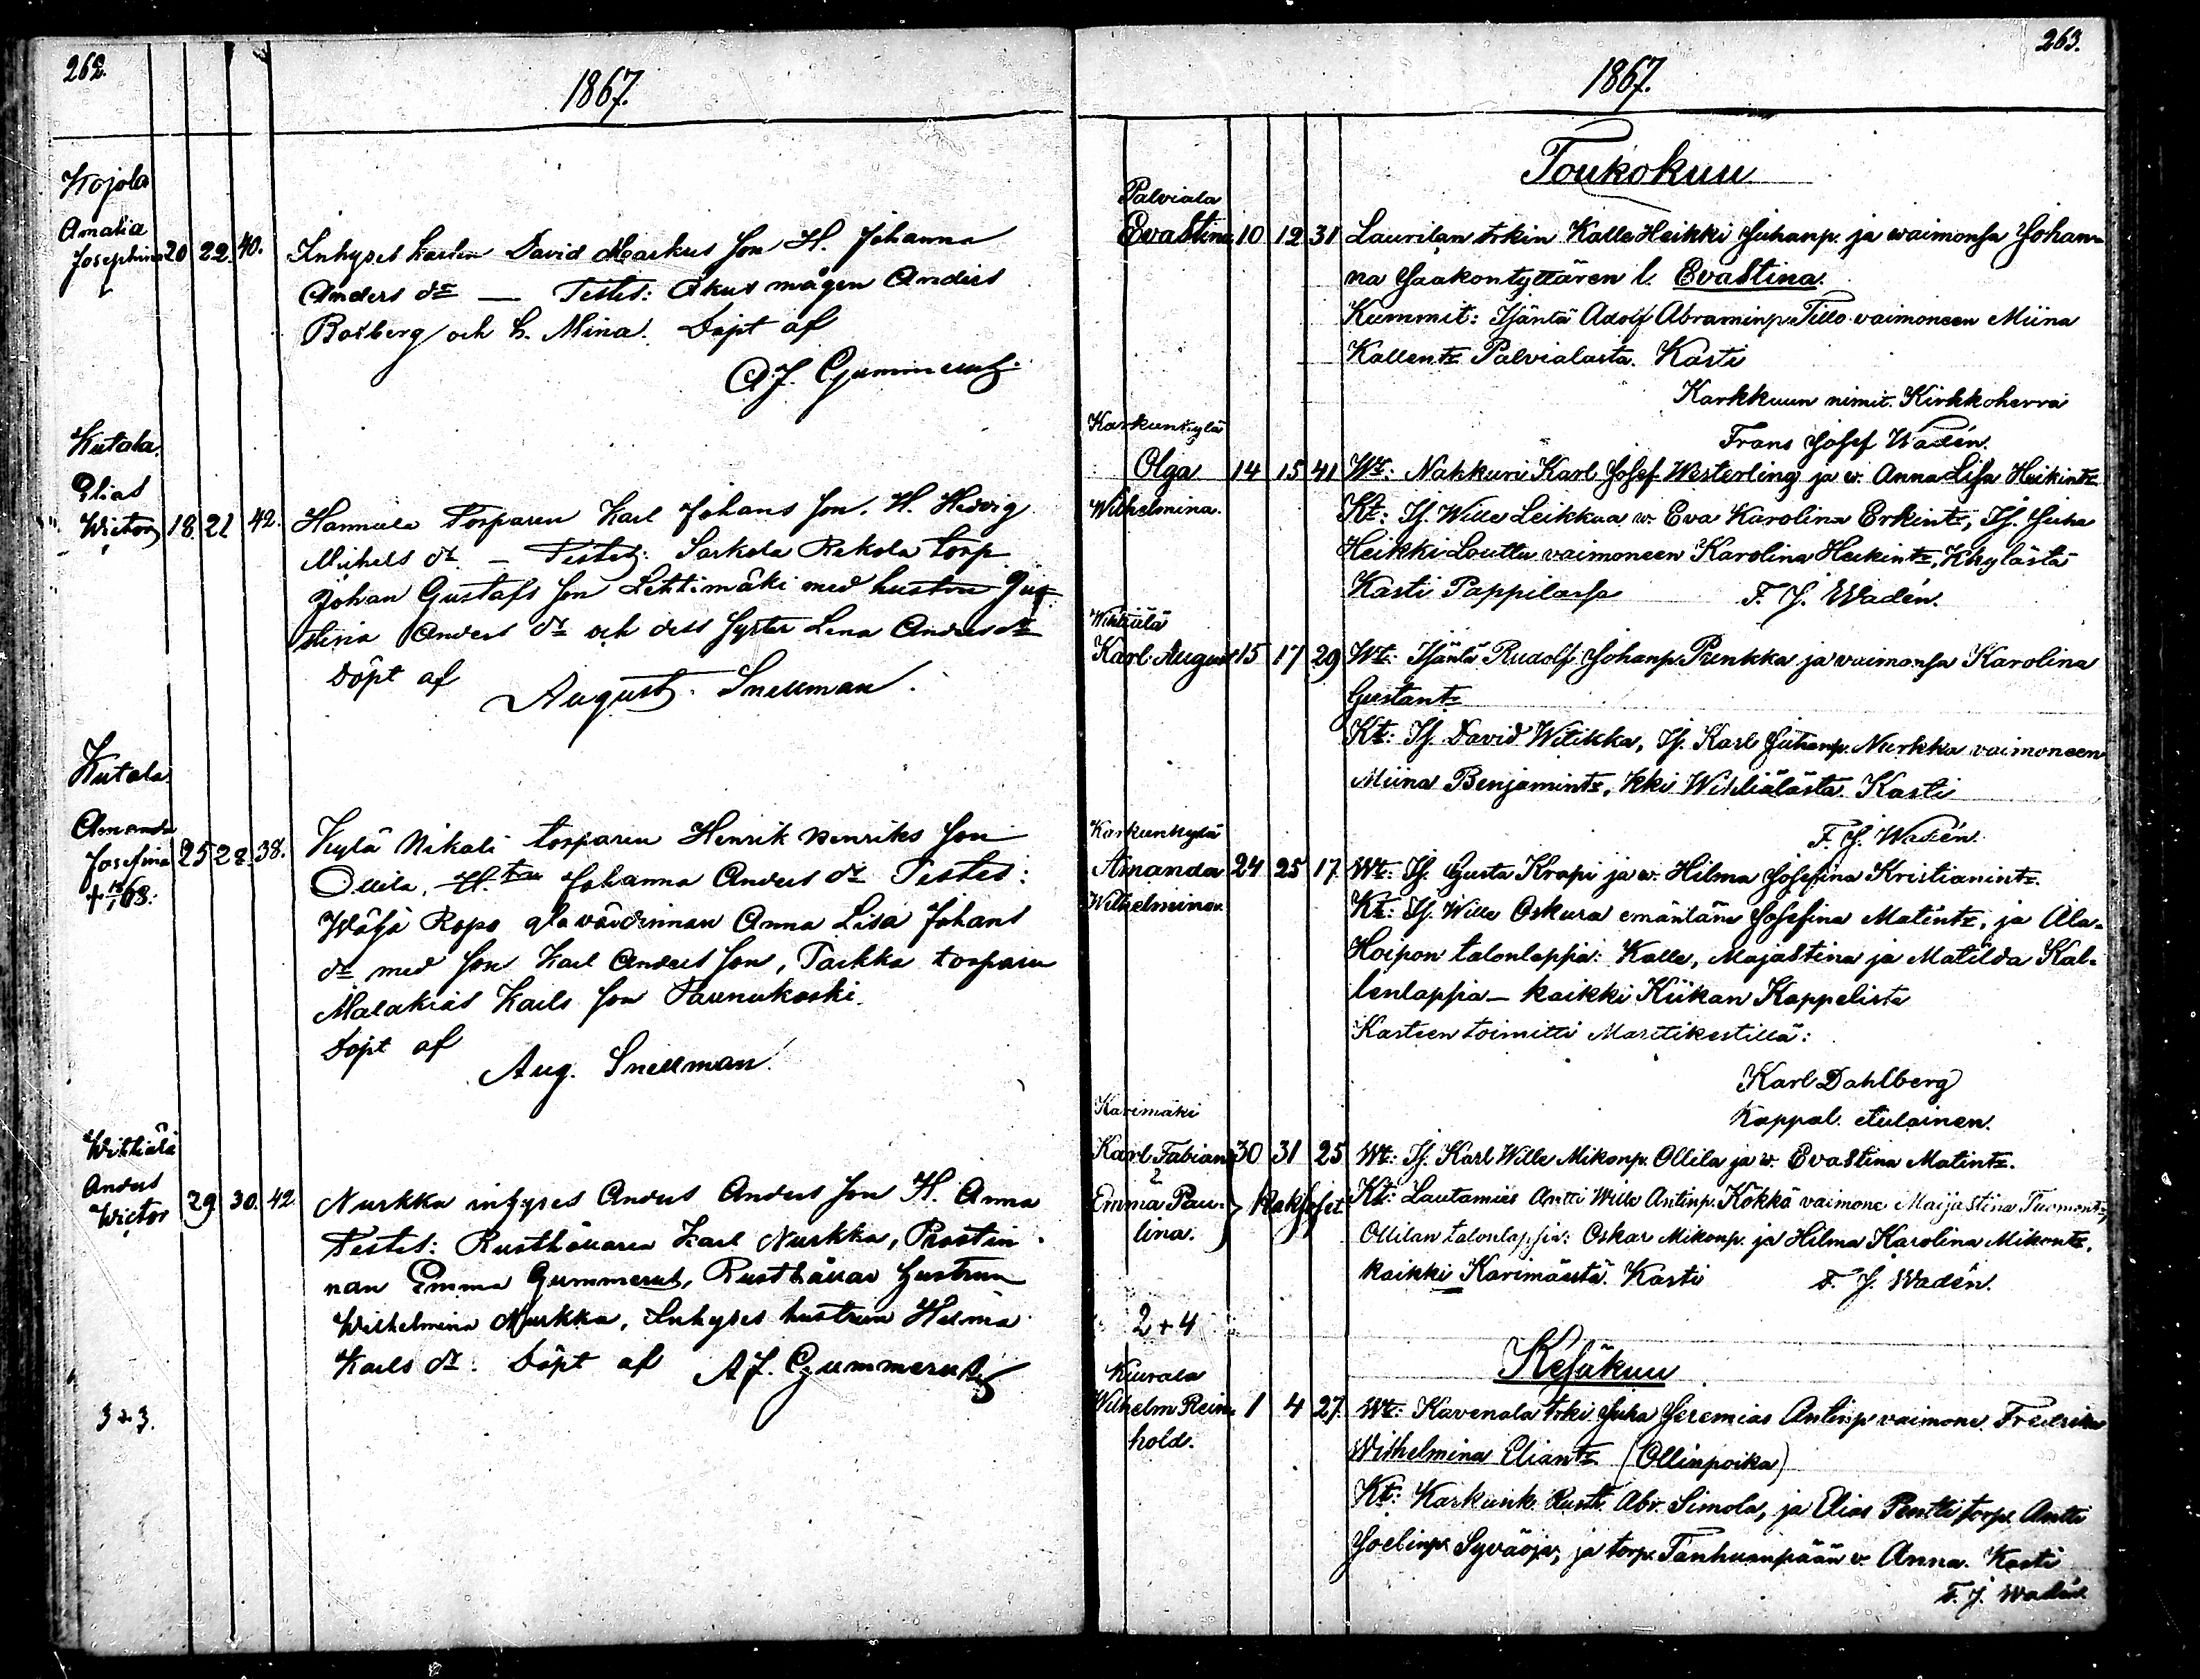 262.
1867.
Kojola
Amalia
Josephina 20 22. 40. Inhyses karlen David Markus Son H. Johanna
Anders dr — Testes: Åkus mågen Anders
Boxberg och h. Mina. Döpt af
A.J. Gummerus
Kutala
Elias
Wictor 18 21 42. Hannula Torparen Karl Johans Son, H. Hedvig
Michels dr. — Testes: Sarkola Rekola torp.
Johan Gustafs Son Lehtimäki med hustru Jus-
stina Anders dr och dess Syster Lena Anders dr
Döpt af
August Snellman.
Kutala
Amanda
Josefina 25 28. 38. Kylä Nikali torparen Henrik Henriks Son
Ollila, H. Johanna Anders dr Testes:
Wähä Ropo Anna Lisa Johans
dr med Son Karl Anders Son, Tarkka torparen
Malakias Karls Son Paunukoski.
Döpt af
Aug. Snellman.
Wihtiälä
Anders
Wictor 29 30. 42 Nurkka inhyses Anders Anders Son H. Anna
Testes: Rusthållaren Karl Nurkka, Prostin-
nan Emma Gummerus, Rusthållar hustrun
Wilhelmina Nurkka, Inhyses hustrun Helma
Karls dr. Döpt af A.J. Gummerus
3+3.
263.
1867.
Toukokuu
Palviala
Evastina 10 12 31 Laurilan trkin Kalle Heikki Juhanp. ja waimonsa Johan-
na Jaakontyttären l. Evastina.
Kummit: Isäntä Adolf Abraminp. Tillo vaimoneen Miina
Kallentr Palvialasta. Kasti
Karkkuun nimit. Kirkkoherra
Frans Josef Wadén.
Karkunkylä
Olga 14 15 41 Wt: Nahkuri Karl Josef Westerling ja w. Anna Lisa Heikintr
Wilhelmina. Kt: Is. Wille Leikkua w. Eva Karolina Erkintr, Is. Juha
Heikki Loutta vaimoneen Karolina Heikintr, Kkylästä
Kasti Pappilassa F. J. Wadén.
Wihtiälä
Karl August 15 17 29 Wt: Isäntä Rudolf Johanp. Punkka ja vaimonsa Karolina
Gustantr
Kt: Is. David Witikka, Is. Karl Juhanp. Nurkka vaimoneen
Miina Benjamintr, kki Wihtiälästä. Kasti
F. J. Wadén.
Karkunkylä
Amanda 24 25 17 Wt: Is. Gusta Krapi ja w. Hilma Josefina Kristianintr.
Wilhelmina. Kt: Is. Wille Oskura emäntäne Josefina Matintr, ja Ala-
Hoipon talonlapsia: Kalle, Majastina ja Matilda Kal-
lenlapsia — kaikki Kiikan Kappelista
Kasteen toimitti Marttikestillä:
Karl Dahlberg
Kappal. Apulainen.
Karimäki
Karl Fabian 30 31 25 Wt: Is. Karl Wille Mikonp. Ollila ja w. Evastina Matintr.
2
Emma Pau- } Kaksoset. Kt: Lautamies Antti Wille Antinp. Kokka vaimone Maijastina Tuomontr,
lina. Ollilan talonlapsia: Oskar Mikonp. ja Hilma Karolina Mikontr,
kaikki Karimäestä. Kasti F. J. Wadén.
2+4
Kesäkuu
Kiurala
Wilhelm Rein- 1 4 27. Wt: Kavenala trki Juha Jeremias Antinp vaimone. Fredrika
hold. Wilhelmina Eliantr (Ollinpoika)
Kt: Karkunk. Rusth. Abr. Simola, ja Elias Pentti torp. Antti
Joelinp. Syväoja, ja torp. Tanhuanpään v. Anna. Kasti
F. J. Wadén